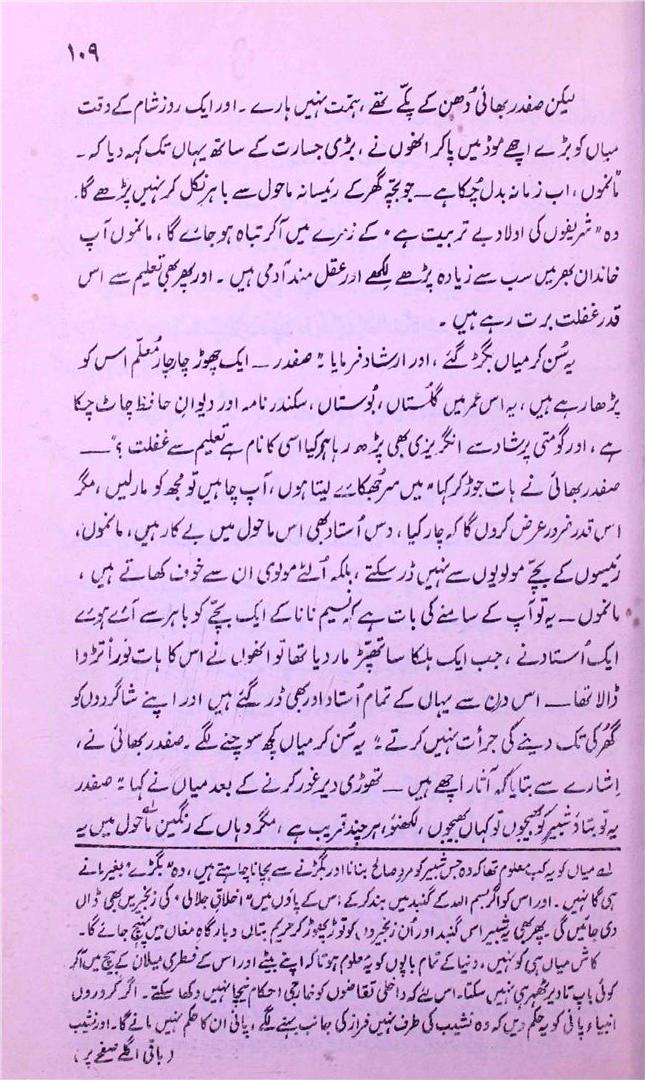 ۱۰۹
لیکن صفدر بھائی دُھن کے پکّے تھے، ہمّت نہیں ہارے۔ اور ایک روز شام کے وقت
میاں کو بڑے اچھے موڈ میں پا کر انھوں نے، بڑی جسارت کے ساتھ یہاں تک کہہ دیا کہ۔
"مانموں، اب زمانہ بدل چُکا ہے — جو بچّہ گھر کے رئیسانہ ماحول سے باہر نکل کر نہیں پڑھے گا۔
وہ "شریفوں کی اولاد بے تربیت ہے" کے زمرے میں آ کر تباہ ہو جائے گا، مانموں آپ
خاندان بھر میں سب سے زیادہ پڑھے لِکھے اور عقل مند آدمی ہیں۔ اور پھر بھی تعلیم سے اس
قدر غفلت برت رہے ہیں۔
یہ سُن کر میاں بگڑ گئے، اور ارشاد فرمایا "صفدر — ایک چھوڑ چار چار مُعلّم اس کو
پڑھا رہے ہیں، یہ اس عمر میں گلُستاں، بُوستاں، سکندر نامہ اور دیوانِ حافظ چاٹ چکا
ہے، اور گومتی پرشاد سے انگریزی بھی پڑھ رہا ہے کیا اسی کا نام ہے تعلیم سے غفلت؟" —
صفدر بھائی نے ہات جوڑ کر کہا "میں سر جُھکائے لیتا ہوں، آپ چاہیں تو مجھ کو مار لیں، مگر
اس قدر ضرور عرض کروں گا کہ چار کیا، دس اُستاد بھی اس ماحول میں بے کار ہیں، مانموں،
رئیسوں کے بچّے مولویوں سے نہیں ڈر سکتے، بلکہ اُلٹے مولوی ان سے خوف کھاتے ہیں،
مانموں — یہ تو آپ کے سامنے کی بات ہے کہ نسیم نانا کے ایک بچّے کو باہر سے آئے ہوئے
ایک اُستاد نے، جب ایک ہلکا سا تھپّڑ مار دیا تھا تو انھوں نے اس کا ہات فوراً تڑوا
ڈالا تھا — اس دن سے یہاں کے تمام اُستاد اور بھی ڈر گئے ہیں اور اپنے شاگردوں کو
گُھرکی تک دینے کی جرأت نہیں کرتے" یہ سُن کر میاں کچھ سوچنے لگے۔ صفدر بھائی نے،
اِشارے سے بتایا کہ آثار اچھے ہیں — تھوڑی دیر غور کرنے کے بعد میاں نے کہا "صفدر
یہ تو بتاؤ شبیر کو بھیجوں تو کہاں بھیجوں، لکھنؤ، ہر چند قریب ہے، مگر وہاں کے رنگین ماحول میں یہ
لے میاں کو یہ کب معلوم تھا کہ وہ جس شبیر کو مردِ صالح بنانا اور بگڑنے سے بچانا چاہتے ہیں، وہ "بگڑے" بغیر مانے
ہی گا نہیں۔ اور اس کو اگر بسم اللہ کے گنبد میں بند کر کے، اس کے پاؤں میں "اخلاقِ جلالی" کی زنجیریں بھی ڈال
دی جائیں گی۔ پھر بھی یہ شبیر اس گنبد اور اُن زنجیروں کو توڑ پھوڑ کر حریمِ بتاں و بارگاہِ مغاں میں پہنچ جائے گا۔
کاش میاں ہی کو نہیں، دنیا کے تمام باپوں کو یہ معلوم ہوتا کہ اپنے بیٹے اور اس کے فطری میلان کے بیچ میں آ کر
کوئی باپ تا دیر ٹھہر ہی نہیں سکتا۔ اس لئے کہ داخلی تقاضوں کو خارجی احکام نیچا نہیں دکھا سکتے۔ اگر کروروں
انبیاء پانی کو یہ حکم دیں کہ وہ نشیب کی طرف نہیں فراز کی جانب بہنے لگے، پانی ان کا حکم نہیں مانے گا۔ اور نشیب
(باقی اگلے صفحے پر)